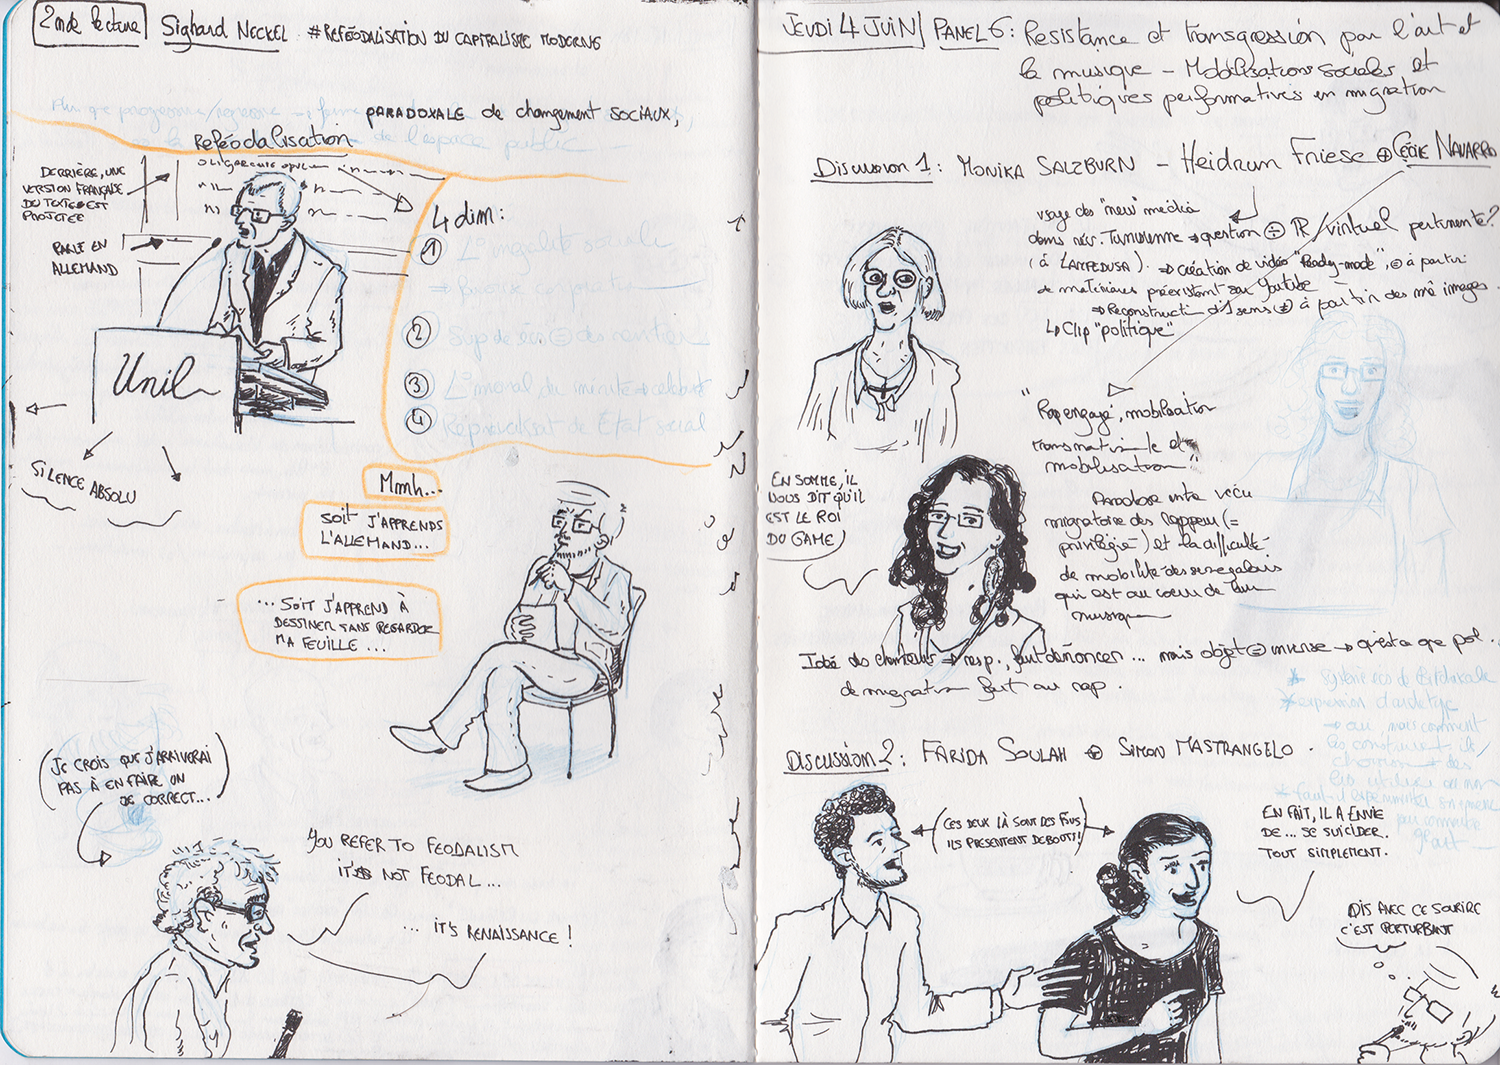 2nde lecture Sighard Neckel #Reféodalisation du capitalisme moderne
paradoxale de changement sociaux,
Reféodalisation de l'espace public
Derrière, une
version française
du texte est
projetée
Parle en
allemand
Unil
Silence absolu
4 dim:
1 L° inégalité sociale
2
3 L° moral du mérite → célébrité
4 Réprivatisat° de État social
Mmh...
Soit j'apprends
l'allemand...
... Soit j'apprend à
dessiner sans regarder
ma feuille...
Je crois que j'arriverai
pas à en faire un
de correct...
You refer to feodalism
it's not feodal...
... it's renaissance!
Jeudi 4 juin Panel 6: Resistance et transgression par l'art et
la musique - Mobilisations sociales et
politiques performatives en migration
Discussion 1: Monika Salzburn - Heidrun Friese ⊕ Cécile Navarro
usage des "new" média
dans rév. Tunisienne → question IR/virtuel pertinente?
(à Lampedusa). ⇒ création de vidéo "Ready-made", à partir
de matériaux préexistant sur Youtube
⇒ Reconstruct° d'1 sens (≠) à partir des mê images.
↳ Clip "politique"
"Rap engagé, mobilisation
transnationale et
mobilisation"
Paradoxe entre vécu
migratoire des rappeurs (=
privilégié) et la difficulté
de mobilité des senegalais
qui est au coeur de leur
musique
En somme, il
vous dit qu'il
est le roi
du game
Idée des chanteurs ⇒ resp., faut dénoncer... mais objet immense → qu'est ce que pol.
de migration fait au rap.
* expression d'artiste
→ oui, mais comment
les construisent ils/
Discussion 2: Farida Souiah ⊕ Simon Mastrangelo.
(Ces deux là sont des fous
ils présentent debout!)
En fait, il a envie
de... se suicider.
Tout simplement.
Dis avec ce sourire
c'est perturbant